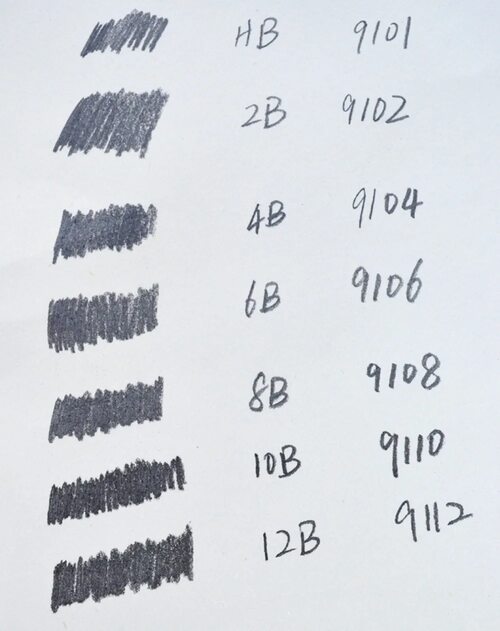 HB 9101
2B 9102
4B 9104
6B 9106
8B 9108
10B 9110
12B 9112